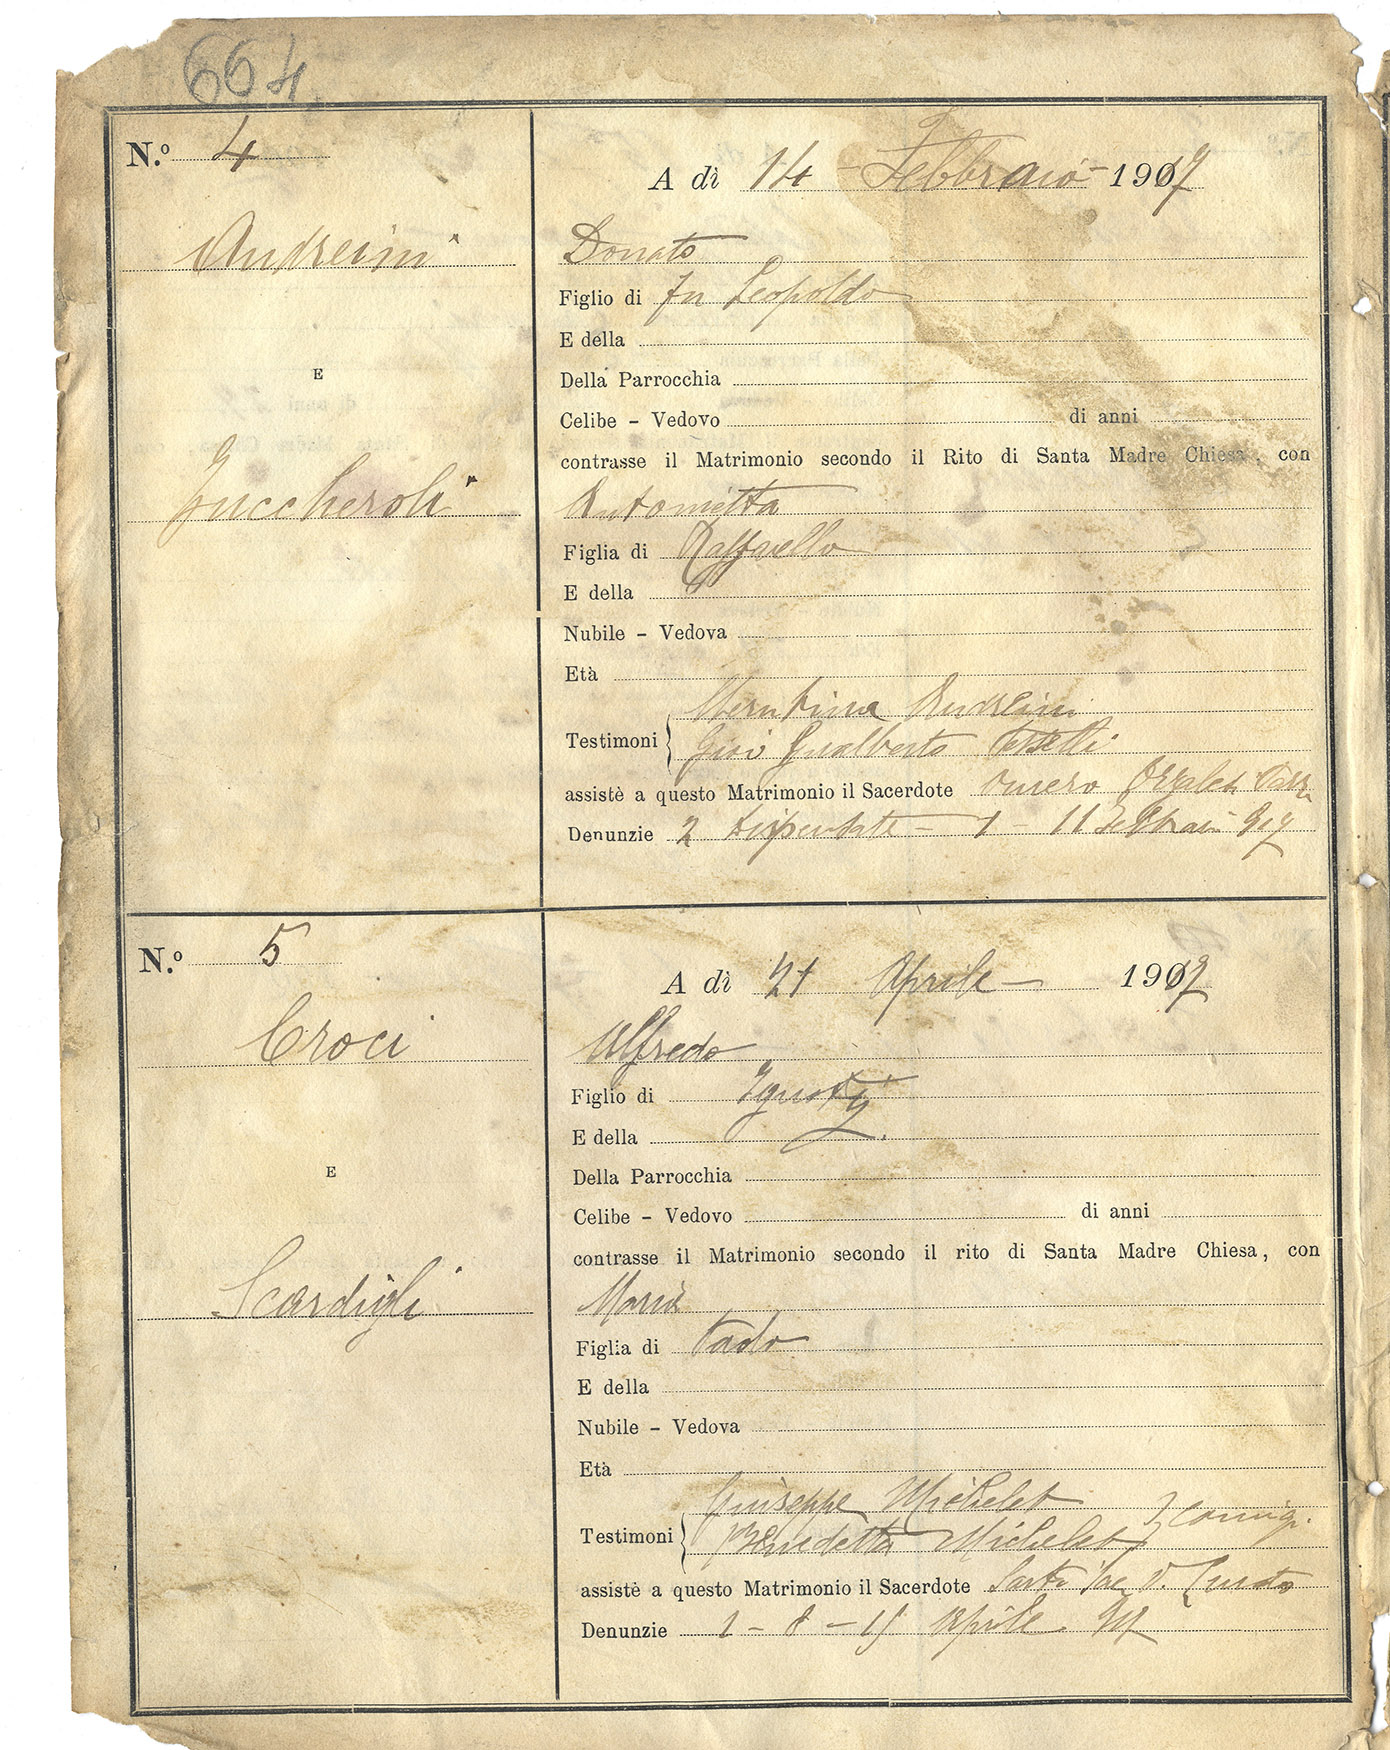 664.
N.º 4
A dì 14 Febbraio 1917
Andreini
Donato
Figlio di fu Leopoldo
E della
E
Della Parrocchia
Celibe - Vedovo di anni
contrasse il Matrimonio secondo il Rito di Santa Madre Chiesa, con
Zuccheroli
Antonietta
Figlia di Raffaello
E della
Nubile - Vedova
Età
Andreini
Testimoni Gualberto
assistè a questo Matrimonio il Sacerdote Omero
Denunzie 2 dispensate - 1 - 11 Febbraio 917
N.º 5
A dì 21 Aprile 1917
Croci
Alfredo
Figlio di Ignoti
E della
E
Della Parrocchia
Celibe - Vedovo di anni
contrasse il Matrimonio secondo il rito di Santa Madre Chiesa, con
Scardigli
Maria
Figlia di
E della
Nubile - Vedova
Età
Giuseppe Michelet
Testimoni Benedetta Michelet coniug.
assistè a questo Matrimonio il Sacerdote Curato
Denunzie 1 - 8 - 15 Aprile 917